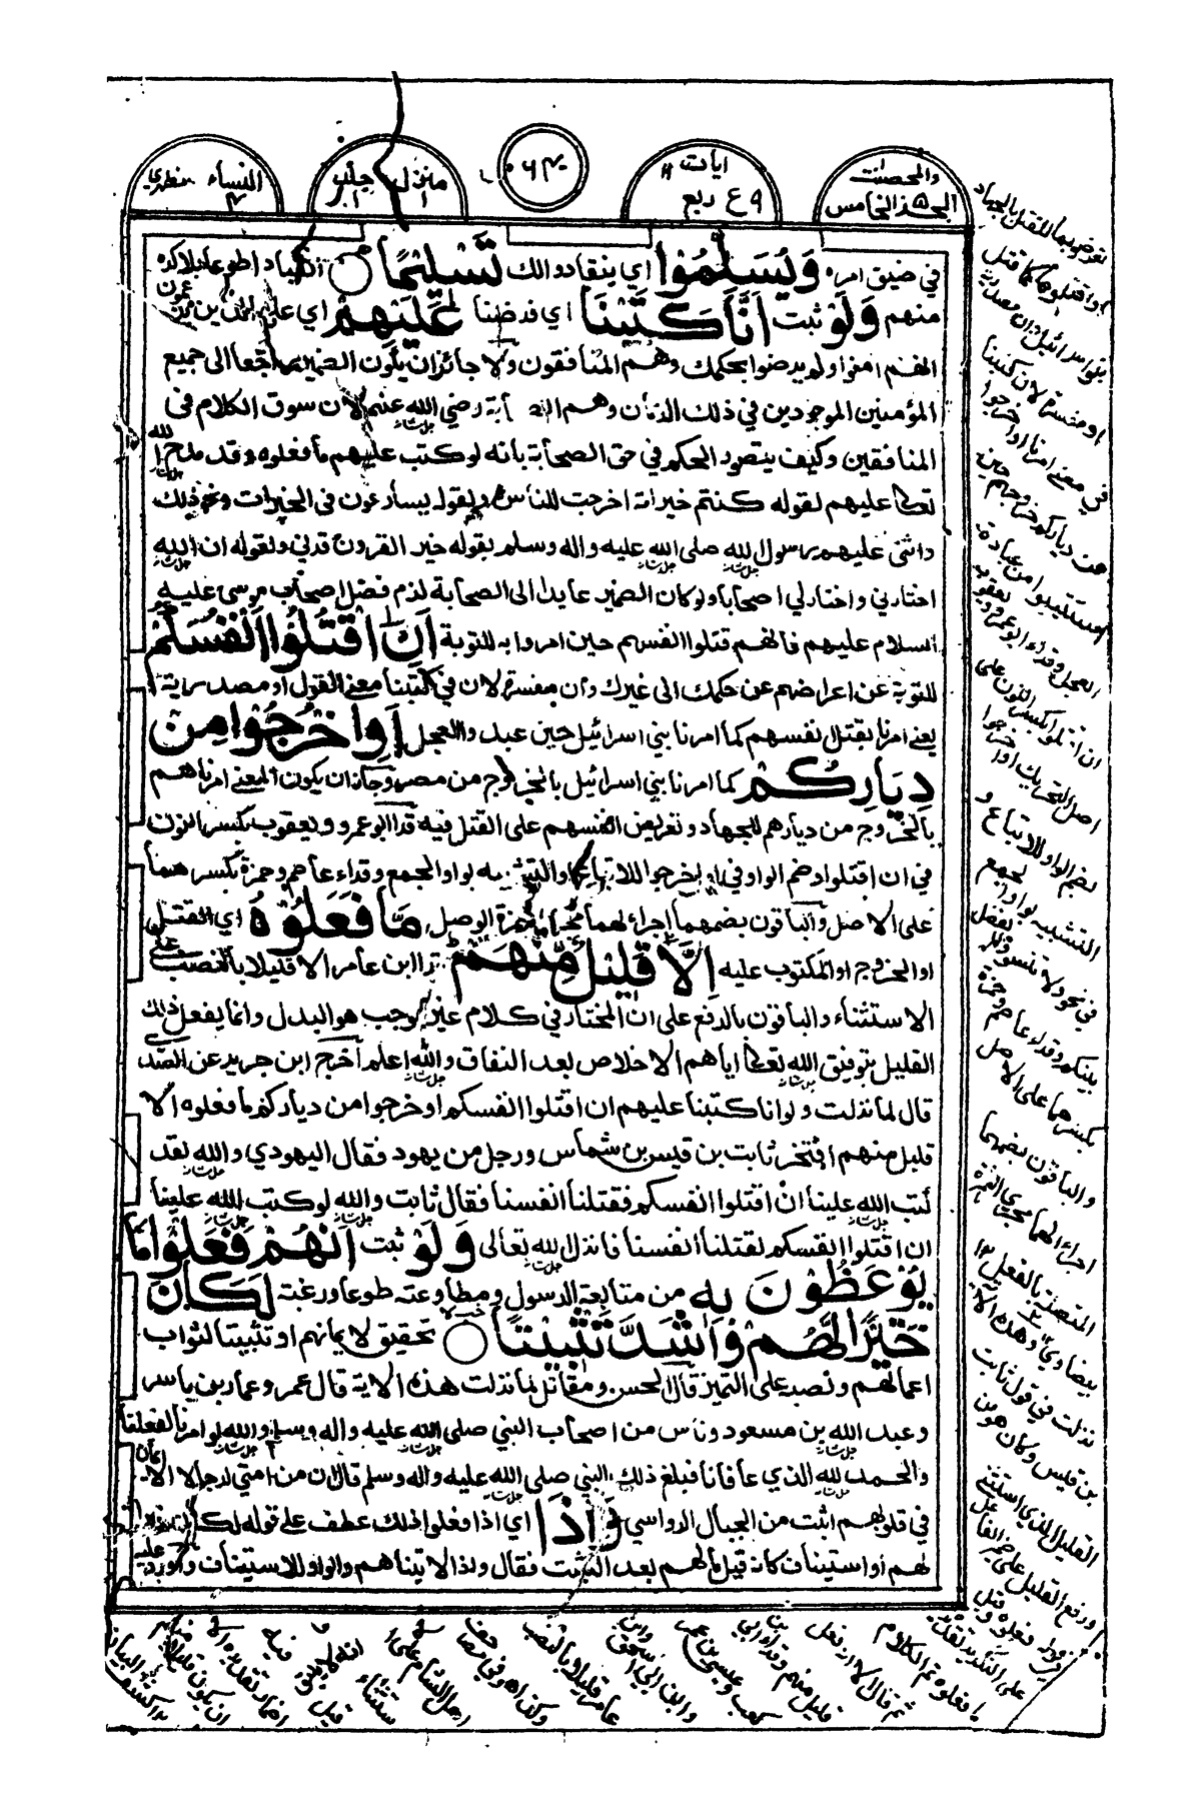 والمحصنت
الجزء الخامس ٥
ايات
٩ ع ربع
منزل ١ جلد ٢
النساء ٤ مظهري
في ضيق امره وَيُسَلِّمُوْا اي ينقادوا لك تَسْلِيْمًا انقيادا طوعا بلا كره
منهم وَلَوْ ثبت اَنَّا كَتَبْنَا اي فرضنا عَلَيْهِمْ اي على الذين يزعمون
انهم امنوا ولم يرضوا بحكمك وهم المنافقون ولا جائز ان يكون الضمير راجعا الى جميع
المؤمنين الموجودين في ذلك الزمان وهم الصحابة رضي الله عنهم لان سوق الكلام في
المنافقين وكيف يتصور الحكم في حق الصحابة بانه لو كتب عليهم ما فعلوه وقد مدح الله
تعالى عليهم لقوله كنتم خير امة اخرجت للناس ولقوله يسارعون في الخيرات ونحو ذلك
واثنى عليهم رسول الله صلى الله عليه واله وسلم بقوله خير القرون قرني ولقوله ان الله
اختارني واختار لي اصحابا ولو كان الضمير عايدا الى الصحابة لزم فضل اصحاب موسى عليه
السلام عليهم فانهم قتلوا انفسهم حين امروا به للتوبة اَنِ اقْتُلُوْا اَنْفُسَكُمْ
للتوبة عن اعراضهم عن حكمك الى غيرك وان مفسرة لان في كتبنا معنى القول او مصدرية
يعني امرنا بقتل نفسهم كما امرنا بني اسرائيل حين عبدوا العجل اَوِ اخْرُجُوْا مِنْ
دِيَارِكُمْ كما امرنا بني اسرائيل بالخروج من مصر وجاز ان يكون المعنى امرناهم
بالخروج من ديارهم للجهاد وتعريض انفسهم على القتل فيه قرا ابو عمرو ويعقوب بكسر النون
في ان اقتلوا وضم الواو في او اخرجوا للاتباع والتشبيه بواو الجمع وقراء عاصم وحمزة بكسرهما
على الاصل والباقون بضمهما اجراء لهما مجرى همزة الوصل مَّا فَعَلُوْهُ اي القتل
او الخروج او المكتوب عليه اِلَّا قَلِيْلٌ مِّنْهُمْ قرا ابن عامر الا قليلا بالنصب على
الاستثناء والباقون بالرفع على ان المختار في كلام غير موجب هو البدل وانما يفعل ذلك
القليل بتوفيق الله تعالى اياهم الاخلاص بعد النفاق والله اعلم اخرج ابن جرير عن السدي
قال لما نزلت ولو انا كتبنا عليهم ان اقتلوا انفسكم او خرجوا من دياركم ما فعلوه الا
قليل منهم افتخر ثابت بن قيس بن شماس ورجل من يهود فقال اليهودي والله لقد
كتب الله علينا ان اقتلوا انفسكم فقتلنا انفسنا فقال ثابت والله لو كتب الله علينا
ان اقتلوا انفسكم لقتلنا انفسنا فانزل الله تعالى وَلَوْ ثبت اَنَّهُمْ فَعَلُوْا مَا
يُوْعَظُوْنَ بِهٖ من متابعة الرسول ومطاوعته طوعا ورغبة لَكَانَ
خَيْرًا لَّهُمْ وَاَشَدَّ تَثْبِيْتًا تحقيق لايمانهم او تثبيتا لثواب
اعمالهم ونصبه على التميز قال الحسن ومقاتل لما نزلت هذه الاية قال عمر وعمار بن ياسر
وعبد الله بن مسعود وناس من اصحاب النبي صلى الله عليه واله وسلم والله لو امرنا لفعلنا
والحمد لله الذي عافانا فبلغ ذلك النبي صلى الله عليه واله وسلم قال ان من امتي لرجالا الايمان
في قلوبهم اثبت من الجبال الرواسي وَّاِذًا اي اذا فعلوا ذلك عطف على قوله لكان خيرا
لهم او استيناف كانه قيل ما لهم بعد التثبت فقال واذا لاتيناهم والواو للاستيناف
تعريضها للقتل بالجهاد
او اقتلوها كما قتل
بنو اسرائيل وان مصدرية
او مفسرة لان كتبنا
في معنى امرنا او اخرجوا
من دياركم خروجهم حين
استتيبوا من عبادة
العجل وقراء ابو عمرو ويعقوب
ان اقتلوا بكسر النون على
اصل التحريك او اخرجوا
بضم الواو للاتباع و
التشبيه بواو الجمع
في نحو ولا تنسوا الفضل
بينكم وقراء عاصم وحمزة
بكسرهما على الاصل
والباقون بضمهما
اجراء لهما مجرى الهمزة
المتصلة بالفعل ١٢
بيضاوي وهذه الاية
نزلت في قول ثابت
بن قيس وكان هو من
القليل الذي استثنى
ورفع القليل على